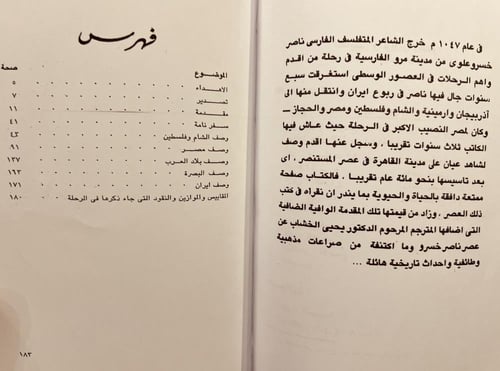 في عام ١٠٤٧ م خرج الشاعر المتفلسف الفارسى ناصر
خسروعلوى من مدينة مرو الفارسية في رحلة من اقدم
واهم الرحلات في العصور الوسطى استغرقت سبع
سنوات جال فيها ناصر في ربوع ايران وانتقل منها الى
آذربيجان وارمينية والشام وفلسطين ومصر والحجاز ــ
وكان لمصر النصيب الاكبر في الرحلة حيث عاش فيها
الكاتب ثلاث سنوات تقريبا . وسجل عنها اقدم وصف
لشاهد عيان على مدينة القاهرة في عصر المستنصر . اى
بعد تاسيسها بنحو مائة عام تقريبا . فالكتاب صفحة
ممتعة دافقة بالحياة والحيوية بما يندر ان نقراه في كتب
ذلك العصر . وزاد من قيمتها تلك المقدمة الوافية الضافية
التى اضافها المترجم المرحوم الدكتور يحيى الخشاب عن
عصر ناصر خسرو وما اكتنفه من صراعات مذهبية
وطائفية واحداث تاريخية هائلة ...
فهرس
الموضوع صفحة
الاهداء ٥
تصدير ٧
مقدمة ١١
سفر نامة ٤١
وصف الشام وفلسطين ٤٣
وصف مصر ٩١
وصف بلاد العرب ١٣٧
وصف البصرة ١٦٣
وصف ايران ١٧١
المقاييس والموازين والنقود التى جاء ذكرها فى الرحلة ١٨٠
١٨٣